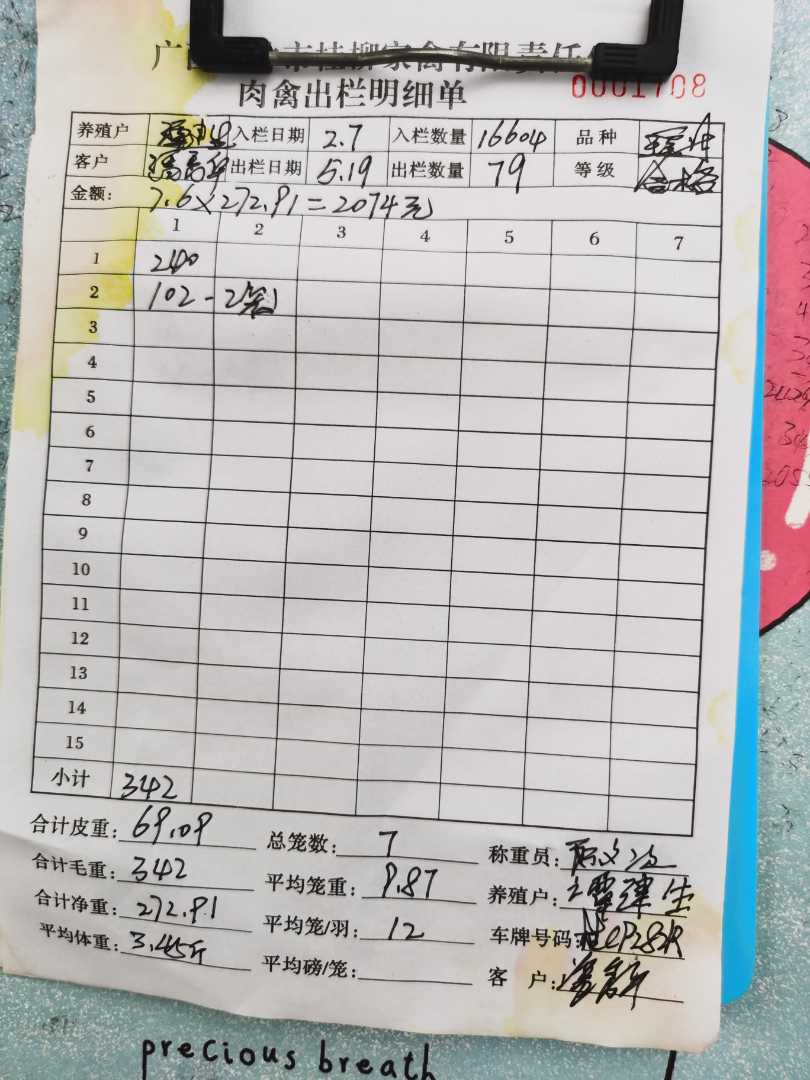 市桂柳家禽有限责任
肉禽出栏明细单 0001708
养殖户 入栏日期 2.7 入栏数量 16604 品种
客户 出栏日期 5.19 出栏数量 79 等级 合格
金额: 7.6×272.91=2074元
1 2 3 4 5 6 7
1 240
2 102-2笼
3
4
5
6
7
8
9
10
11
12
13
14
15
小计 342
合计皮重: 69.09 总笼数: 7 称重员:
合计毛重: 342 平均笼重: 9.87 养殖户: 覃津生
合计净重: 272.91 平均笼/羽: 12 车牌号码:
平均体重: 3.45斤 平均磅/笼: 客户:
precious breath